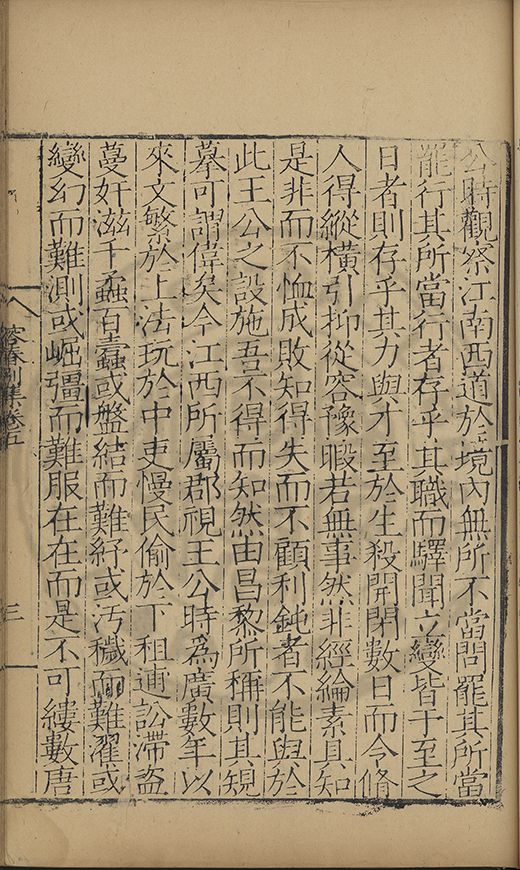 公時觀察江南西道於境內無所不當問罷其所當
罷行其所當行者存乎其職而驛聞立變皆于至之
日者則存乎其力與才至於生殺開閉數日而令脩
人得縱橫引抑從容豫暇若無事然非經綸素具知
是非而不恤成敗知得失而不顧利鈍者不能與於
此王公之設施吾不得而知然由昌黎所稱則其規
摹可謂偉矣今江西所屬郡視王公時爲廣數年以
來文繁於上法玩於中吏慢民偷於下租逋訟滯盜
蔓奸滋千蟊百蠹或盤結而難紓或汚穢而難濯或
變幻而難測或崛彊而難服在在而是不可縷數唐
卷五
三